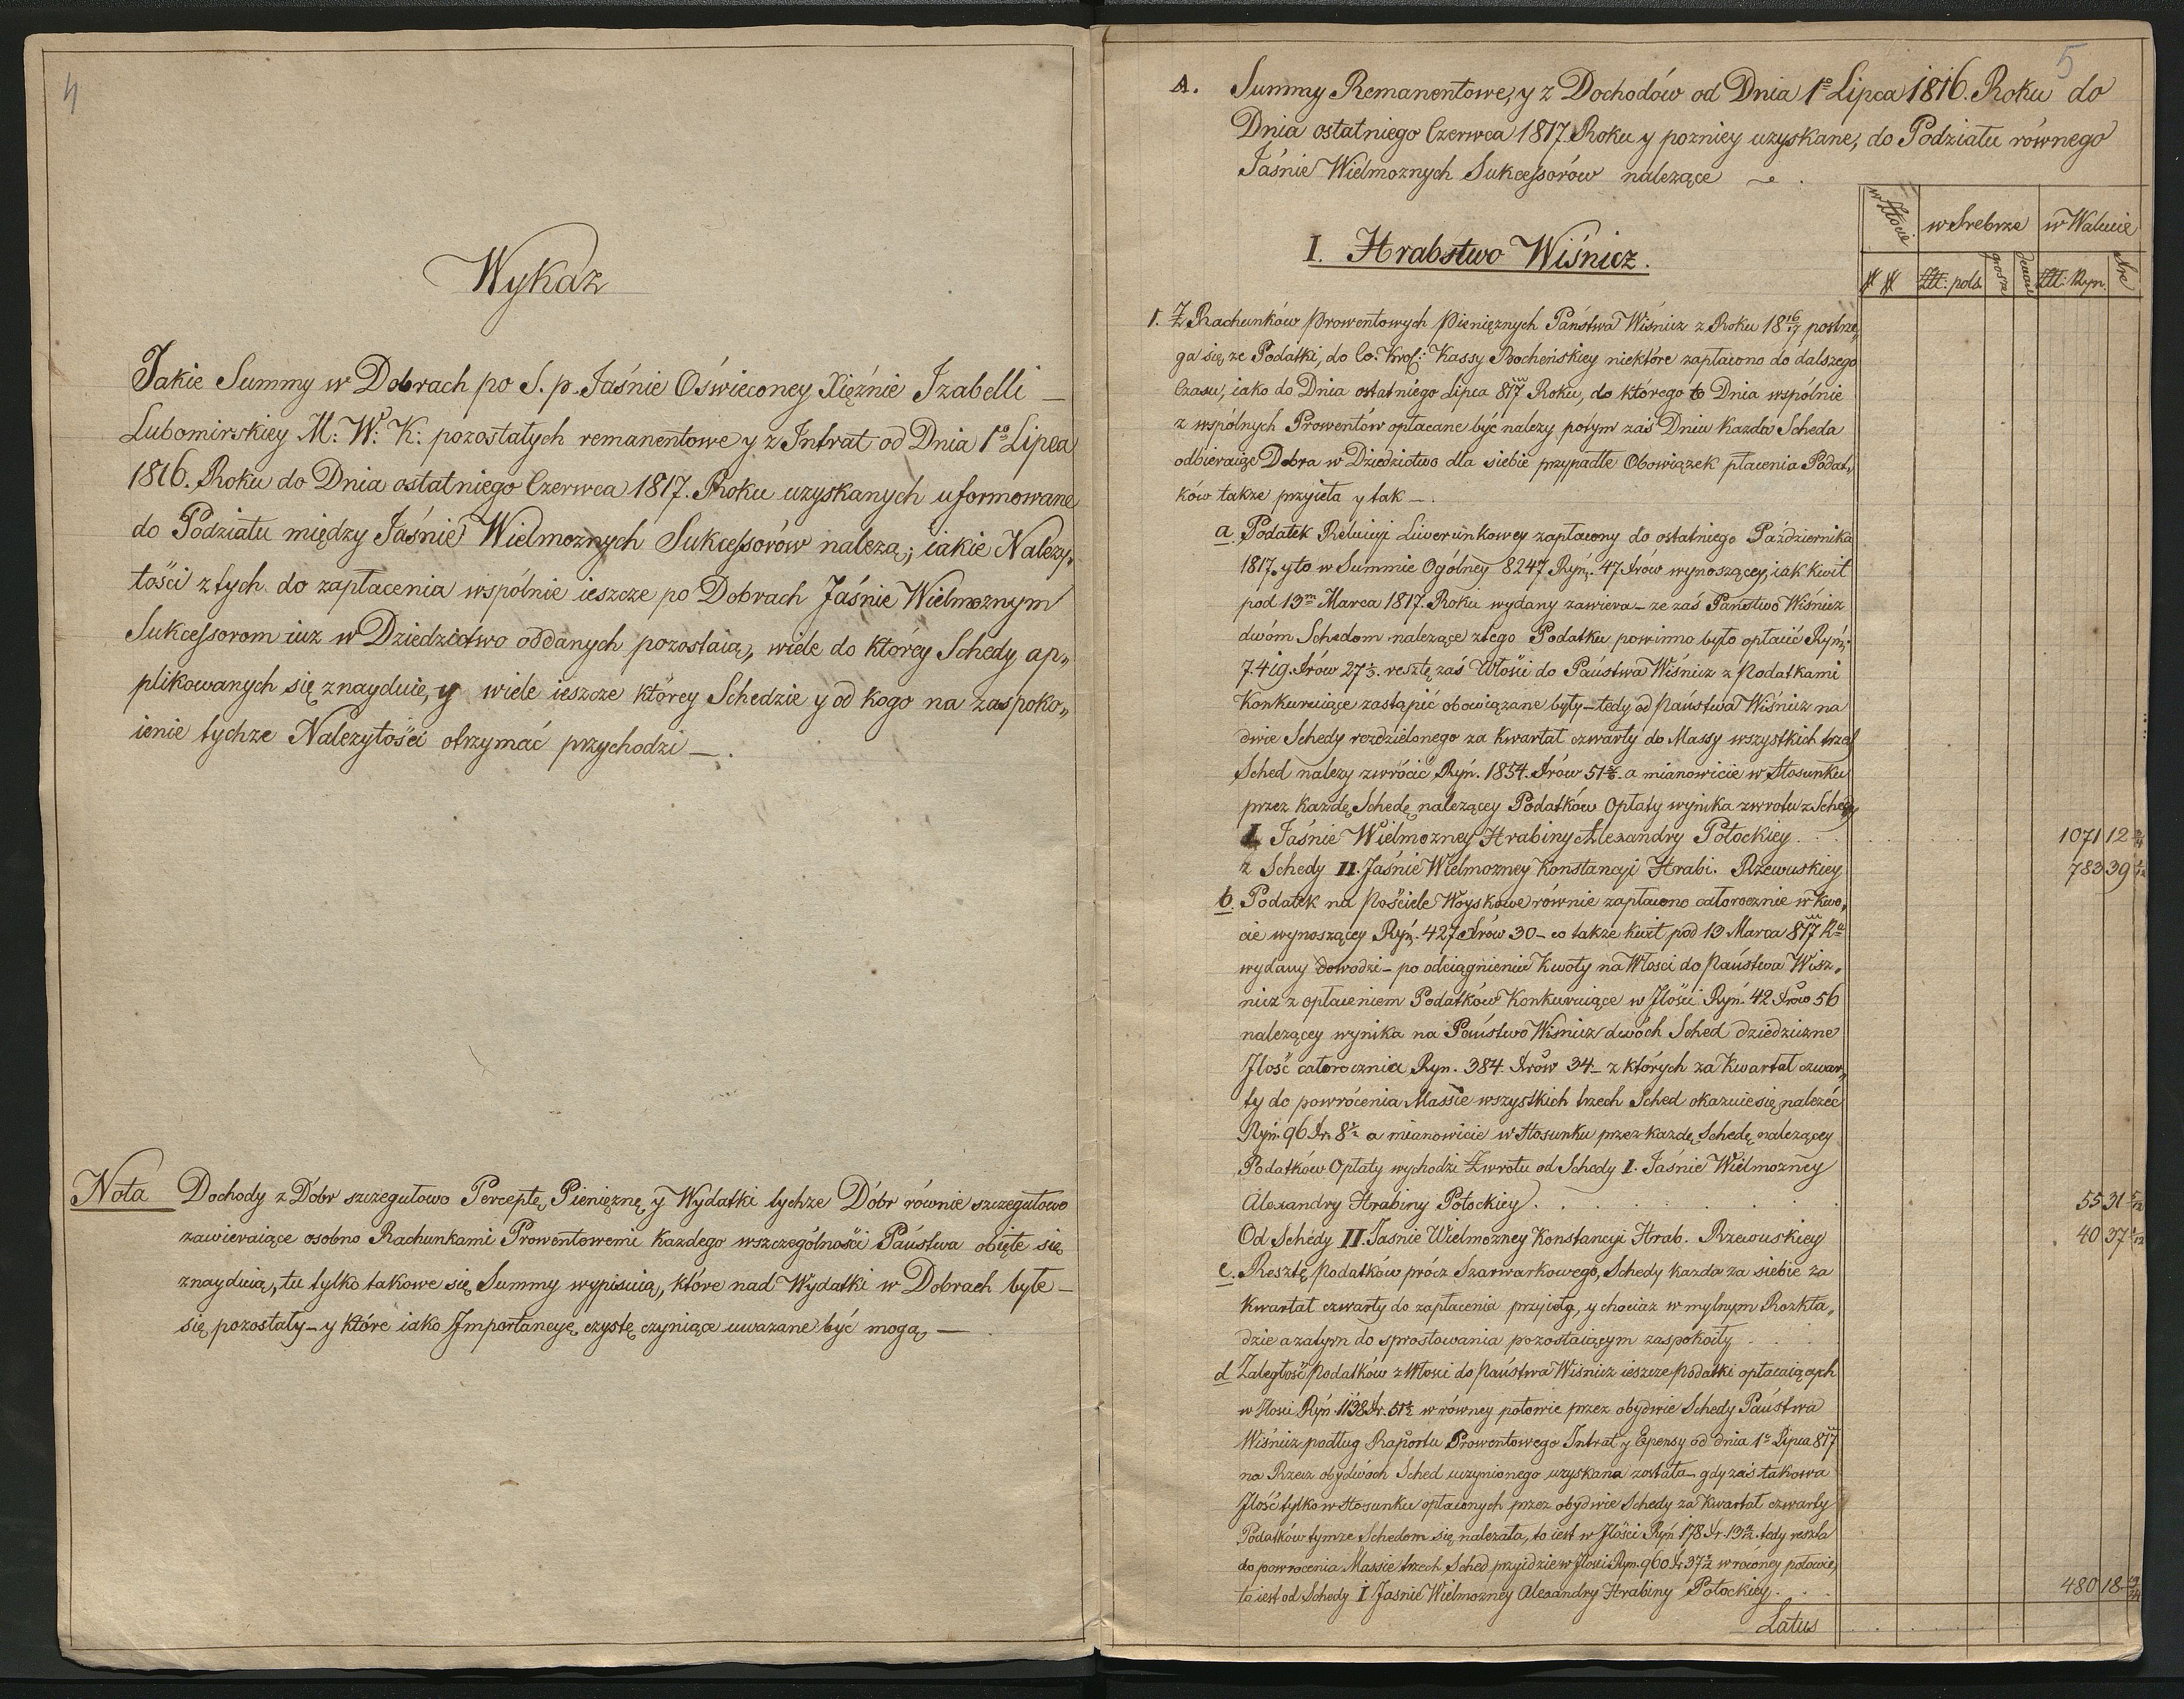 4
Wykaz
Jakie Summy w Dobrach po S. p. Jaśnie Oświeconey Xiężnie Izabelli —
Lubomirskiey M: W: K: pozostałych remanentowe y z Intrat od Dnia 1o Lipca
1816. Roku do Dnia ostatniego Czerwca 1817. Roku uzyskanych uformowane
do Podziału między Jaśnie Wielmoznych Sukcessorów nalezą; iakie Nalezy„
tości z tych do zapłacenia wspólnie ieszcze po Dobrach Jaśnie Wielmoznym
Sukcessorom iuz w Dziedzictwo oddanych pozostaią, wiele do którey Schedy ap„
plikowanych się znayduie, y wiele ieszcze którey Schedzie y od kogo na zaspoko„
ienie tychze Nalezytości otrzymać przychodzi —.
Nota Dochody z Dóbr szczegułowo Perceptę Pieniężnę y Wydatki tychze Dóbr równie szczegułowo
zawieraiące osobno Rachunkami Prowentowemi kazdego wszczególności Państwa obięte się
znayduią, tu tylko takowe się Summy wypisuią, które nad Wydatki w Dobrach byłe —
się pozostały – y które iako Importancyę czystę czyniące uwazane być mogą —.
5
A. Summy Remanentowe, y z Dochodów od Dnia 1o Lipca 1816. Roku do
Dnia ostatniego Czerwca 1817. Roku y pozniey uzyskane, do Podziału równego
Jaśnie Wielmoznych Sukcessorów nalezące
w Złocie w Srebrze w Walucie
I. Hrabstwo Wiśnicz.
# # Złt: pols. grosze Złt: Ryn. Xre
1. Z Rachunków Prowentowych Pieniężnych Państwa Wiśnicz z Roku 18 16/17 postrze„
ga się, ze Podatki, do Co: Krol: Kassy Bocheńskiey niektóre zapłacono do dalszego
Czasu, iako do Dnia ostatniego Lipca 817 Roku, do którego to Dnia wspólnie
z wspólnych Prowentów opłacane być nalezy, potym zaś Dniu Kazda Scheda
odbieraiąc Dobra w Dziedzictwo dla siebie przypadłe Obowiązek płacenia Podat„
ków takze przyieła y tak —.
a. Podatek Reluicyi Liwerunkowey zapłacony do ostatniego Października
1817. y to w Summie Ogólney 8247 Ryń. 47 Xrów wynoszącey, iak kwit
pod 13m Marca 1817. Roku wydany zawiera – ze zaś Państwo Wiśnicz
dwóm Schedom nalezące z tego Podatku powinno było opłacić Ryń:
7419. Xrów 27 1/3. resztę zaś Włości do Państwa Wiśnicz z Podatkami
Konkuruiące zastąpić obowiązane były – tedy od Państwa Wiśnicz na
dwie Schedy rozdzielonego za kwartał czwarty do Massy wszystkich trzech
Sched nalezy zwrócić Ryń. 1854. Xrów 51 5/6. a mianowicie w Stosunku
przez kazdę Schedę nalezącey Podatków Opłaty wynika zwrotu z Schedy
I. Jaśnie Wielmozney Hrabiny Alexandry Potockiey . . . 1071 12
z Schedy II. Jaśnie Wielmozney Konstancyi Hrabi. Rzewuskiey 783 39
b. Podatek na Pościele Woyskowe równie zapłacono całorocznie w kwo„
cie wynoszącey Ryń. 427 Xrów 30 – co takze kwit pod 13 Marca 817 Ru
wydany dowodzi – po odciągnieniu Kwoty na Włosci do Państwa Wisz„
nicz z opłaceniem Podatków Konkuruiące w Ilości Ryń. 42 Xrów 56
nalezącey wynika na Państwo Wiśnicz dwóch Sched dziedziczne
Ilość całorocznia Ryn. 384. Xrów 34 – z których za Kwartał czwar„
ty do powrócenia Massie wszystkich trzech Sched okazuie się nalezéć
Ryń. 96 Xr. 8 1/2 a mianowicie w Stosunku przez kazdę Schedę nalezącey
Podatków Opłaty wychodzi Zwrotu od Schedy I. Jaśnie Wielmozney
Alexandry Hrabiny Potockiey . . . . . . 55 31 5/12
Od Schedy II. Jasnie Wielmozney Konstancyi Hrab. Rzewuskiey 40 37 1/12
c. Resztę Podatków prócz Szarwarkowego, Schedy kazda za siebie za
kwartał czwarty do zapłacenia przyięłą, y chociaz w mylnym Rozkła„
dzie a zatym do sprostowania pozostaiącym zaspokoiły . . . .
d. Zaległość Podatków z Włosci do Państwa Wiśnicz ieszcze Podatki opłacaiących
w Ilosci Ryń. 1138 Xr. 51 1/2 w równey połowie przez obydwie Schedy Państwa
Wiśnicz podług Raportu Prowentowego Intrat y Expensy od dnia 1o Lipca 817
na Rzecz obydwóch Sched uczynionego uzyskana została – gdy zaś takowa
Ilość tylko w Stosunku opłaconych przez obydwie Schedy za Kwartał czwarty
Podatków tymze Schedom się nalezała, to iest w Ilości Ryń 178 Xr. 13 tedy reszta
do powrocenia Massie trzech Sched przyidzie w Ilosci Ryn. 960 Xr 37 w rówńey połowie,
to iest od Schedy I Jasnie Wielmozney Alexandry Hrabiny Potockiey . . . 480 18 19/24
Latus